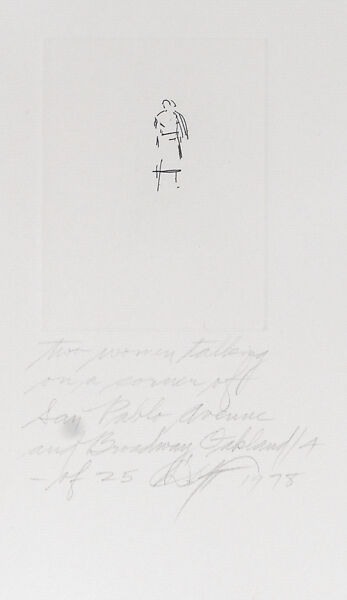 two women talking
on a corner off
San Pablo Avenue
and Broadway, Oakland/4
- of 25 1978